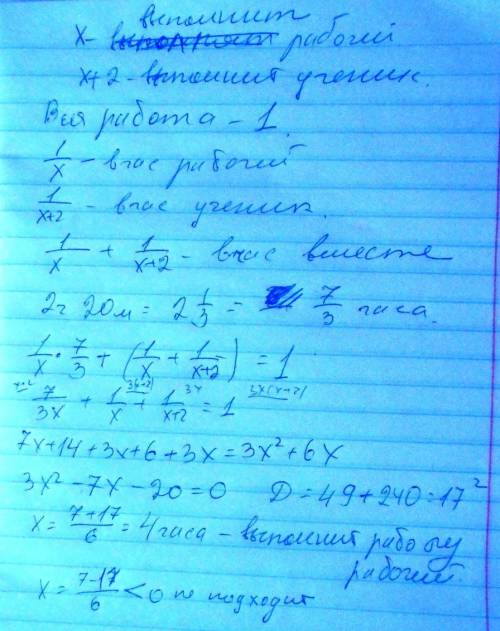 выполнит
х- рабочий
х+2 - выполнит ученик.
Вся работа - 1.
1/x - в час рабочий
1/(x+2) - в час ученик.
1/x + 1/(x+2) - в час вместе
2ч 20м = 2 1/3 = 7/3 часа.
1/x · 7/3 + (1/x + 1/(x+2)) = 1
7/3x + 1/x + 1/(x+2) = 1
7x+14+3x+6+3x=3x²+6x
3x²-7x-20=0 D=49+240=17²
x= (7+17)/6 = 4 часа - выполнит работу
рабочий
x= (7-17)/6 <0 не подходит